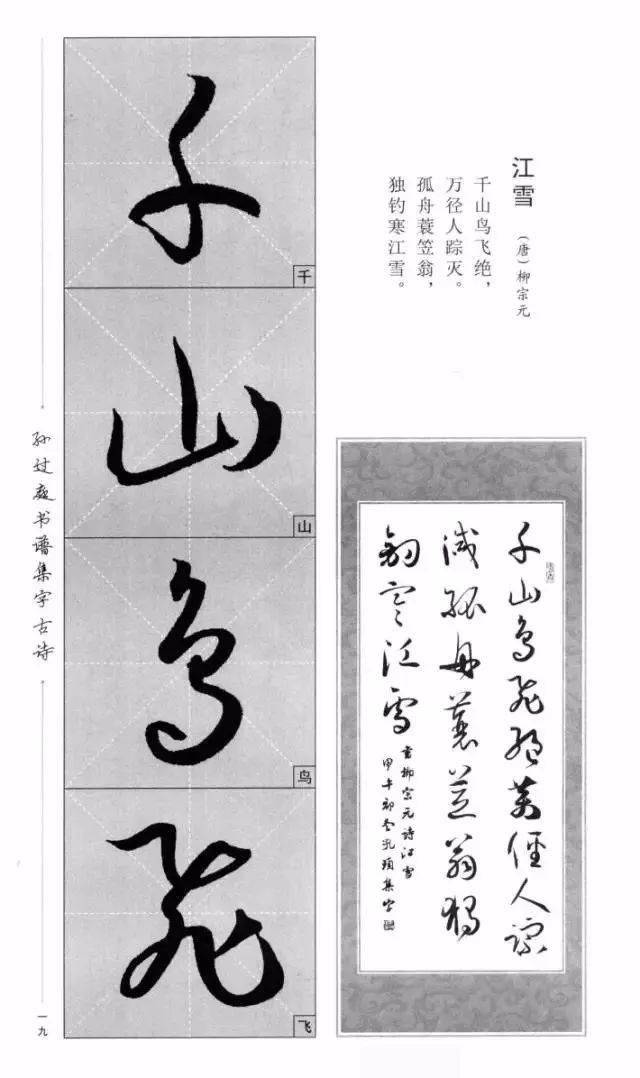 江雪
（唐）柳宗元
千山鸟飞绝，
万径人踪灭。
孤舟蓑笠翁，
独钓寒江雪。
千山鳥飛絕萬徑人踪
滅孤舟蓑笠翁獨
釣寒江雪
書柳宗元詩江雪
甲午初冬
集字
千
千
山
山
鳥
鸟
飛
飞
孙过庭书谱集字古诗
一九